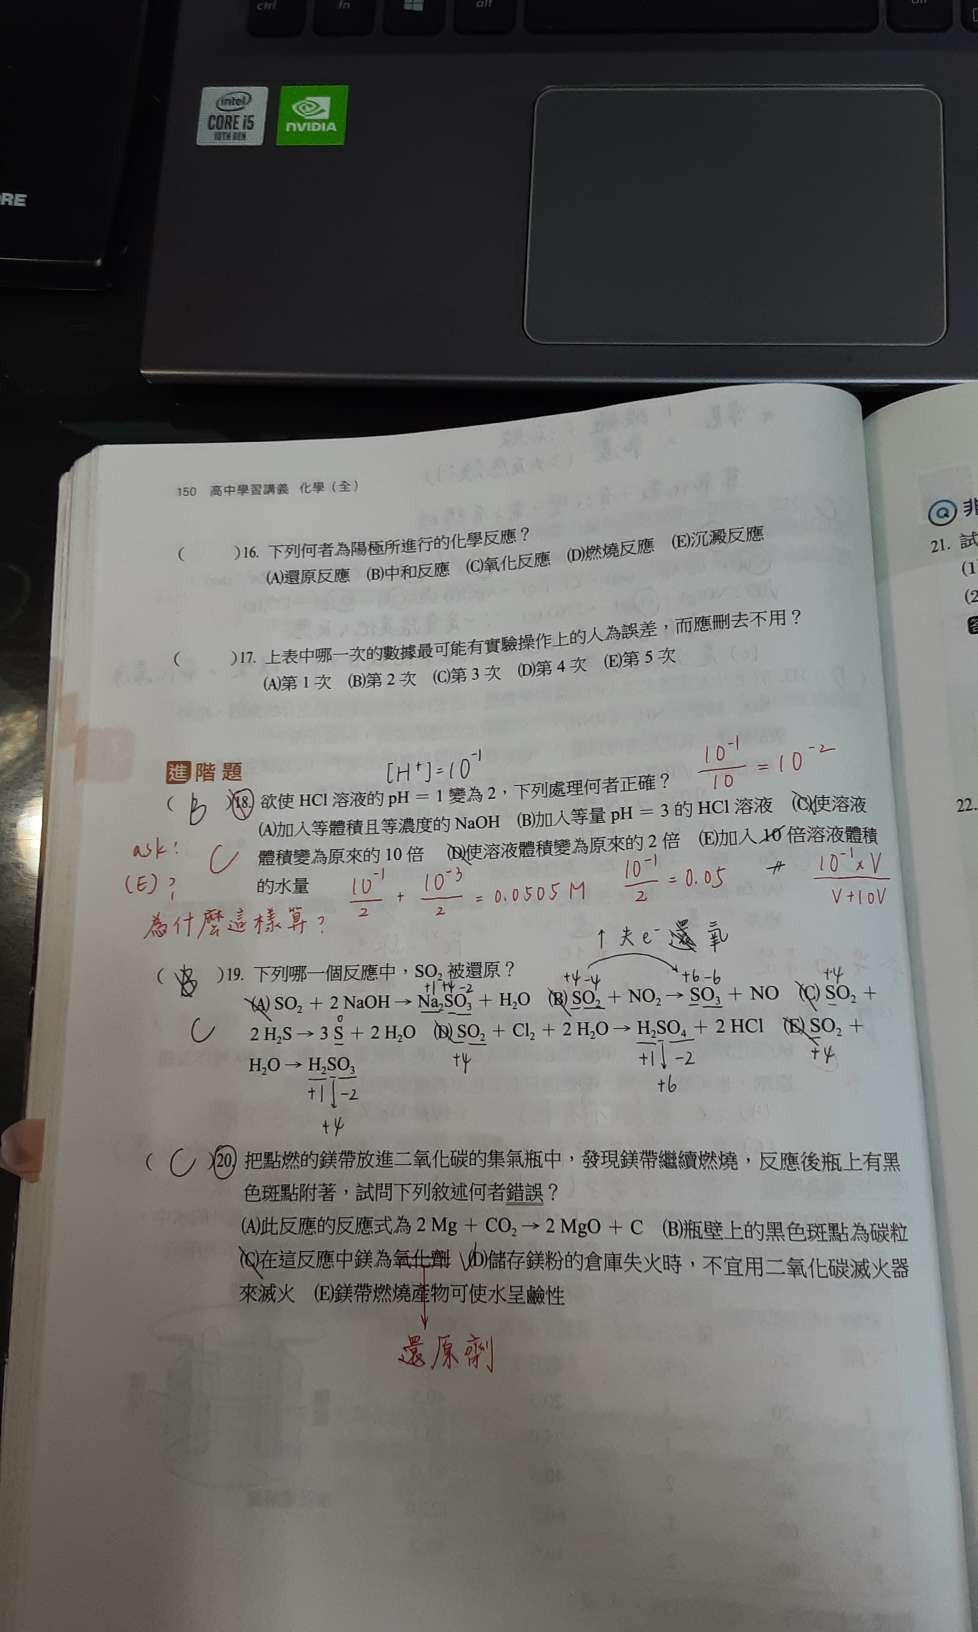 ctrl
fn
alt
intel
CORE i5
10TH GEN
NVIDIA
RE
150 高中學習講義 化學（全）
( )16. 下列何者為陽極所進行的化學反應？
(A)還原反應 (B)中和反應 (C)氧化反應 (D)燃燒反應 (E)沉澱反應
( )17. 上表中哪一次的數據最可能有實驗操作上的人為誤差，而應刪去不用？
(A)第 1 次 (B)第 2 次 (C)第 3 次 (D)第 4 次 (E)第 5 次
進階題
[H⁺]=10⁻¹
10⁻¹/10 = 10⁻²
( B )18. 欲使 HCl 溶液的 pH = 1 變為 2，下列處理何者正確？
(A)加入等體積且等濃度的 NaOH (B)加入等量 pH = 3 的 HCl 溶液 (C)使溶液
ask: C
體積變為原來的 10 倍 (D)使溶液體積變為原來的 2 倍 (E)加入 10 倍溶液體積
(E)?
的水量
10⁻¹/2 + 10⁻³/2 = 0.0505 M
10⁻¹/2 = 0.05
10⁻¹×V/V+10V
為什麼這樣算？
↑失e⁻ 氧
( )19. 下列哪一個反應中，SO₂ 被還原？
+1 +4 -2
+4 -4
+6 -6
+4
(A) SO₂ + 2 NaOH → Na₂SO₃ + H₂O (B) SO₂ + NO₂ → SO₃ + NO (C) SO₂ +
0
C
2 H₂S → 3 S + 2 H₂O (D) SO₂ + Cl₂ + 2 H₂O → H₂SO₄ + 2 HCl (E) SO₂ +
+4
+1 -2
+4
H₂O → H₂SO₃
+6
+1 -2
+4
( C )20. 把點燃的鎂帶放進二氧化碳的集氣瓶中，發現鎂帶繼續燃燒，反應後瓶上有黑
色斑點附著，試問下列敘述何者錯誤？
(A)此反應的反應式為 2 Mg + CO₂ → 2 MgO + C (B)瓶壁上的黑色斑點為碳粒
(C)在這反應中鎂為氧化劑 (D)儲存鎂粉的倉庫失火時，不宜用二氧化碳滅火器
來滅火 (E)鎂帶燃燒產物可使水呈鹼性
還原劑
Q 非
21. 試
(1
(2
22.